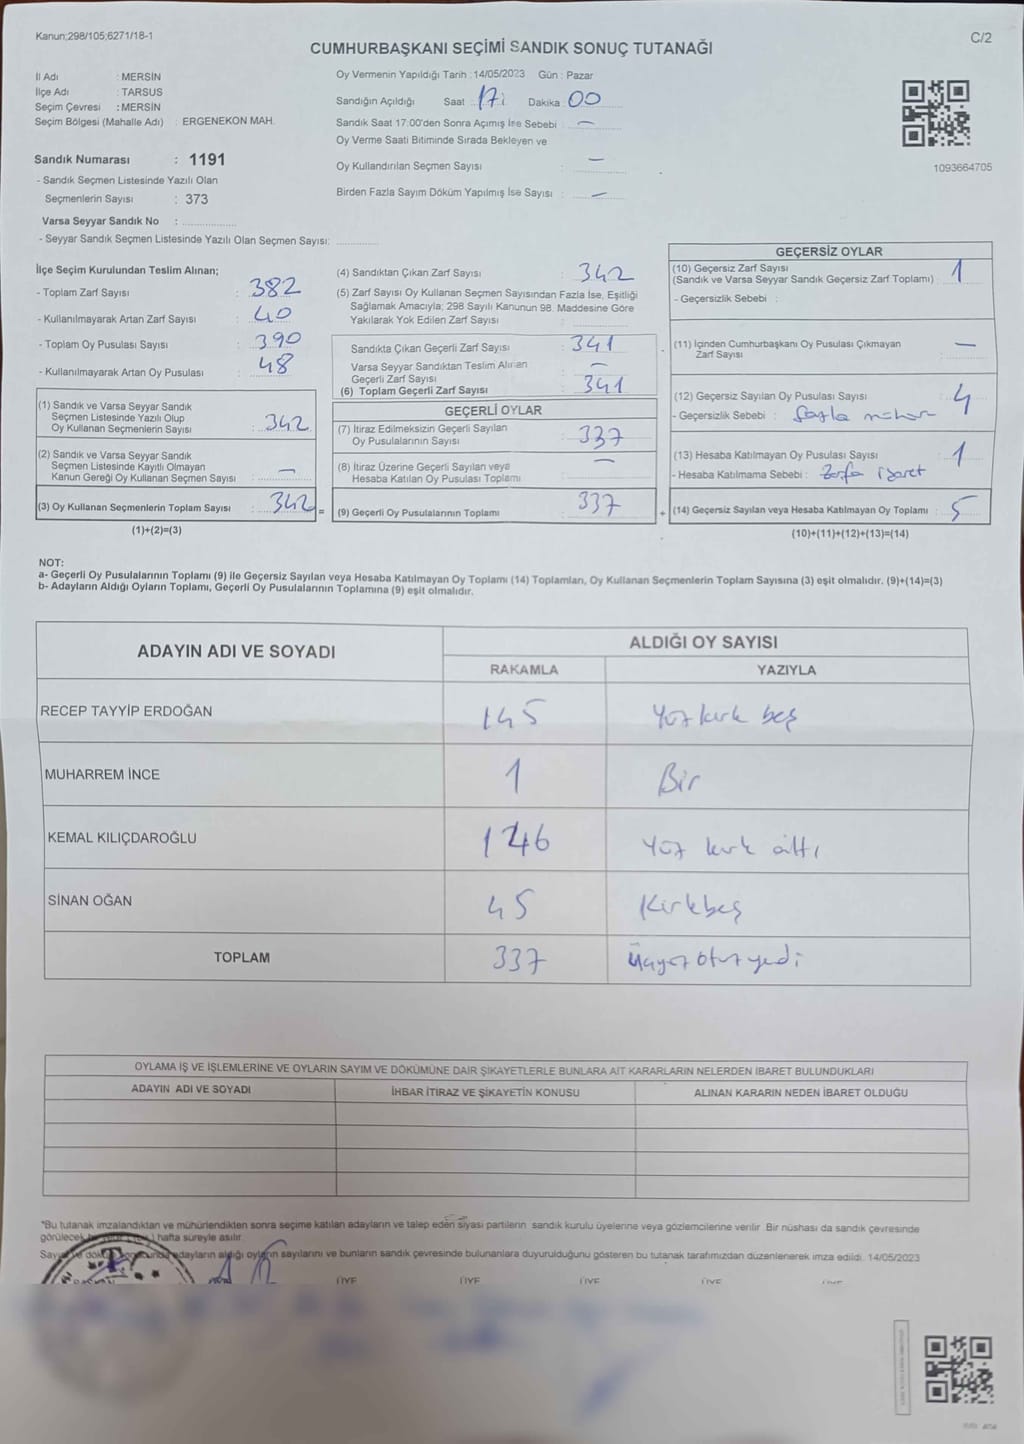 Kanun;298/105;6271/18-1
C/2
CUMHURBAŞKANI SEÇİMİ SANDIK SONUÇ TUTANAĞI
İl Adı : MERSİN
İlçe Adı : TARSUS
Seçim Çevresi : MERSİN
Seçim Bölgesi (Mahalle Adı) : ERGENEKON MAH.
Sandık Numarası : 1191
- Sandık Seçmen Listesinde Yazılı Olan
Seçmenlerin Sayısı : 373
Varsa Seyyar Sandık No :
- Seyyar Sandık Seçmen Listesinde Yazılı Olan Seçmen Sayısı:
Oy Vermenin Yapıldığı Tarih : 14/05/2023 Gün : Pazar
Sandığın Açıldığı Saat 17 Dakika : 00
Sandık Saat 17:00'den Sonra Açımış İse Sebebi : —
Oy Verme Saati Bitiminde Sırada Bekleyen ve
Oy Kullandırılan Seçmen Sayısı : —
Birden Fazla Sayım Döküm Yapılmış İse Sayısı : —
1093664705
İlçe Seçim Kurulundan Teslim Alınan;
- Toplam Zarf Sayısı : 382
- Kullanılmayarak Artan Zarf Sayısı : 40
- Toplam Oy Pusulası Sayısı : 390
- Kullanılmayarak Artan Oy Pusulası : 48
(1) Sandık ve Varsa Seyyar Sandık
Seçmen Listesinde Yazılı Olup
Oy Kullanan Seçmenlerin Sayısı : 342
(2) Sandık ve Varsa Seyyar Sandık
Seçmen Listesinde Kayıtlı Olmayan
Kanun Gereği Oy Kullanan Seçmen Sayısı : —
(3) Oy Kullanan Seçmenlerin Toplam Sayısı : 342 =
(1)+(2)=(3)
(4) Sandıktan Çıkan Zarf Sayısı : 342
(5) Zarf Sayısı Oy Kullanan Seçmen Sayısından Fazla İse, Eşitliği
Sağlamak Amacıyla; 298 Sayılı Kanunun 98. Maddesine Göre
Yakılarak Yok Edilen Zarf Sayısı :
Sandıkta Çıkan Geçerli Zarf Sayısı : 341
Varsa Seyyar Sandıktan Teslim Alınan
Geçerli Zarf Sayısı : —
(6) Toplam Geçerli Zarf Sayısı : 341
GEÇERLİ OYLAR
(7) İtiraz Edilmeksizin Geçerli Sayılan
Oy Pusulalarının Sayısı : 337
(8) İtiraz Üzerine Geçerli Sayılan veya
Hesaba Katılan Oy Pusulası Toplamı : —
(9) Geçerli Oy Pusulalarının Toplamı : 337 +
GEÇERSİZ OYLAR
(10) Geçersiz Zarf Sayısı
(Sandık ve Varsa Seyyar Sandık Geçersiz Zarf Toplamı) : 1
- Geçersizlik Sebebi :
(11) İçinden Cumhurbaşkanı Oy Pusulası Çıkmayan
Zarf Sayısı : —
(12) Geçersiz Sayılan Oy Pusulası Sayısı : 4
- Geçersizlik Sebebi : fazla mühür
(13) Hesaba Katılmayan Oy Pusulası Sayısı : 1
- Hesaba Katılmama Sebebi : Zarfa işaret
(14) Geçersiz Sayılan veya Hesaba Katılmayan Oy Toplamı : 5
(10)+(11)+(12)+(13)=(14)
NOT:
a- Geçerli Oy Pusulalarının Toplamı (9) ile Geçersiz Sayılan veya Hesaba Katılmayan Oy Toplamı (14) Toplamları, Oy Kullanan Seçmenlerin Toplam Sayısına (3) eşit olmalıdır. (9)+(14)=(3)
b- Adayların Aldığı Oyların Toplamı, Geçerli Oy Pusulalarının Toplamına (9) eşit olmalıdır.
ADAYIN ADI VE SOYADI
ALDIĞI OY SAYISI
RAKAMLA YAZIYLA
RECEP TAYYİP ERDOĞAN 145 Yüz kırk beş
MUHARREM İNCE 1 Bir
KEMAL KILIÇDAROĞLU 146 Yüz kırk altı
SİNAN OĞAN 45 Kırkbeş
TOPLAM 337 Üçyüz otuz yedi
OYLAMA İŞ VE İŞLEMLERİNE VE OYLARIN SAYIM VE DÖKÜMÜNE DAİR ŞİKAYETLERLE BUNLARA AİT KARARLARIN NELERDEN İBARET BULUNDUKLARI
ADAYIN ADI VE SOYADI İHBAR İTİRAZ VE ŞİKAYETİN KONUSU ALINAN KARARIN NEDEN İBARET OLDUĞU
*Bu tutanak imzalandıktan ve mühürlendikten sonra seçime katılan adayların ve talep eden siyasi partilerin sandık kurulu üyelerine veya gözlemcilerine verilir. Bir nüshası da sandık çevresinde
görülecek hafta süreyle asılır.
adayların aldığı oyların sayılarını ve bunların sandık çevresinde bulunanlara duyurulduğunu gösteren bu tutanak tarafımızdan düzenlenerek imza edildi. 14/05/2023
ÜYE ÜYE ÜYE ÜYE